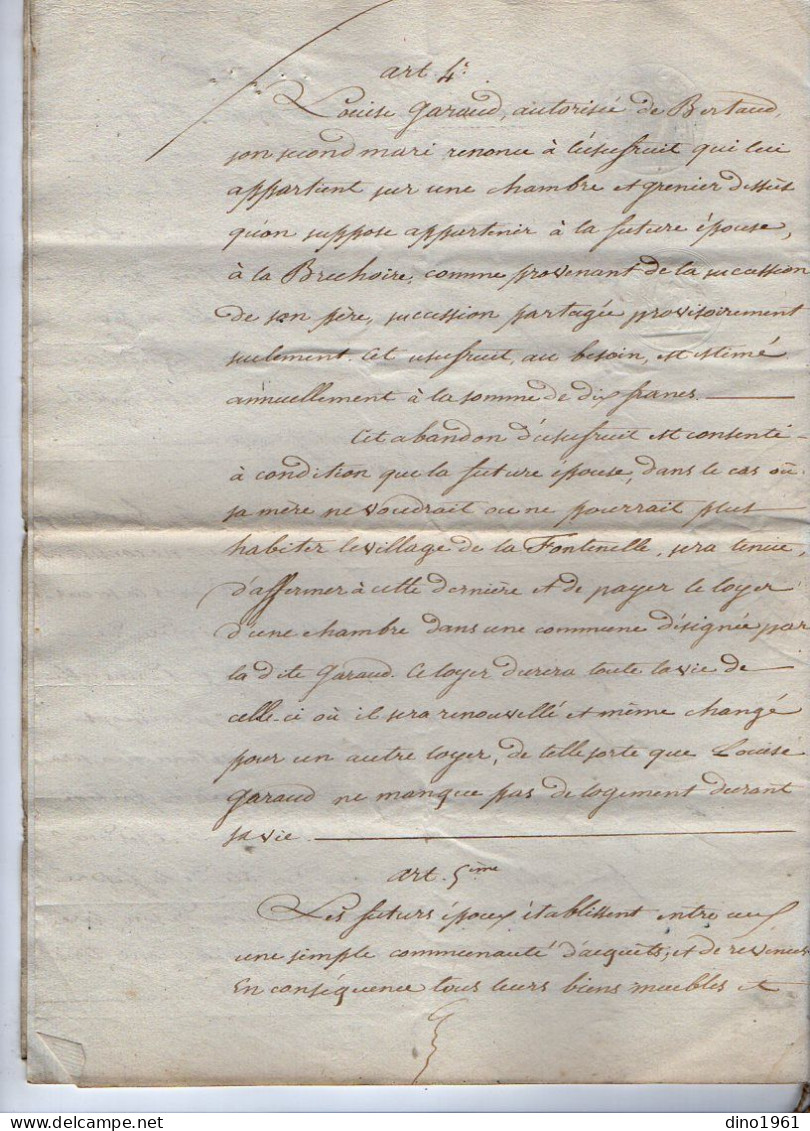 art 4e.
Louise Garaud, autorisée de Bertaud,
son second mari, renonce à l'usufruit qui lui
appartient sur une chambre et grenier dessus
qu'on suppose appartenir à la future épouse,
à la Bruhoire, comme provenant de la succession
de son père, succession partagée provisoirement
seulement. Cet usufruit, au besoin, est estimé
annuellement à la somme de dix francs.
Cet abandon d'usufruit est consenti
à condition que la future épouse, dans le cas où
sa mère ne voudrait ou ne pourrait plus
habiter le village de la Fontenelle, sera tenue,
d'affermer à cette dernière et de payer le loyer
d'une chambre dans une commune désignée par
la dite Garaud. Ce loyer durera toute la vie de
celle-ci où il sera renouvellé et même changé
pour un autre loyer, de telle sorte que Louise
Garaud ne manque pas de logement durant
sa vie.
art. 5ème
Les futurs époux établissent entre eux
une simple communauté d'acquêts, et de revenus
En conséquence tous leurs biens meubles et
dino1961